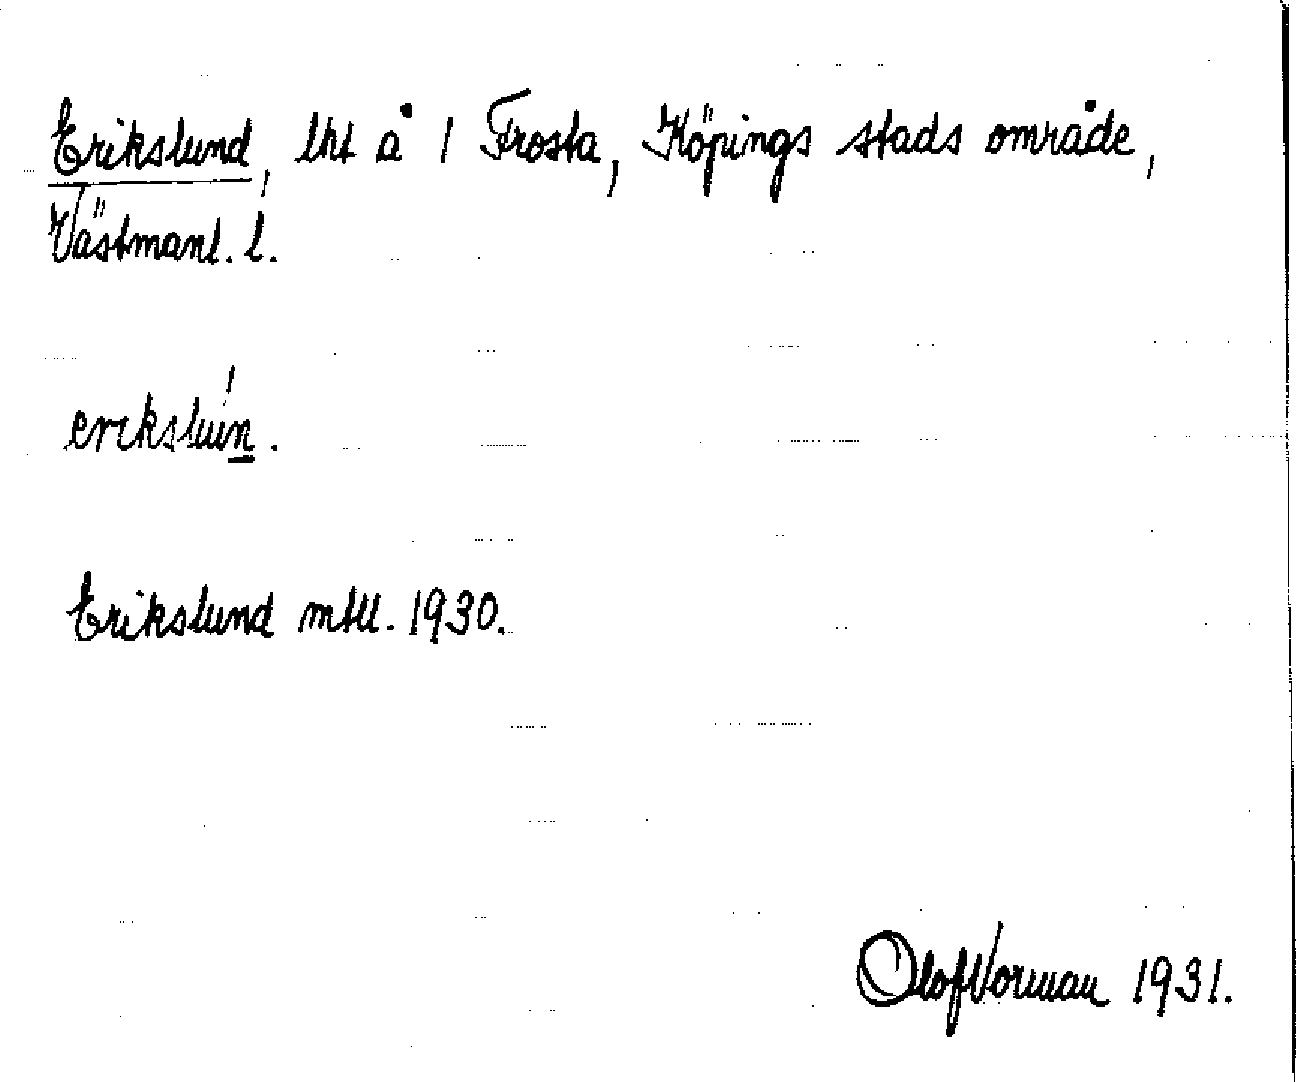 Erikslund, lht å 1 Frosta, Köpings stads område,
Västmanl. l.
erikslún.
Erikslund mtll. 1930.
Olof Vorman 1931.